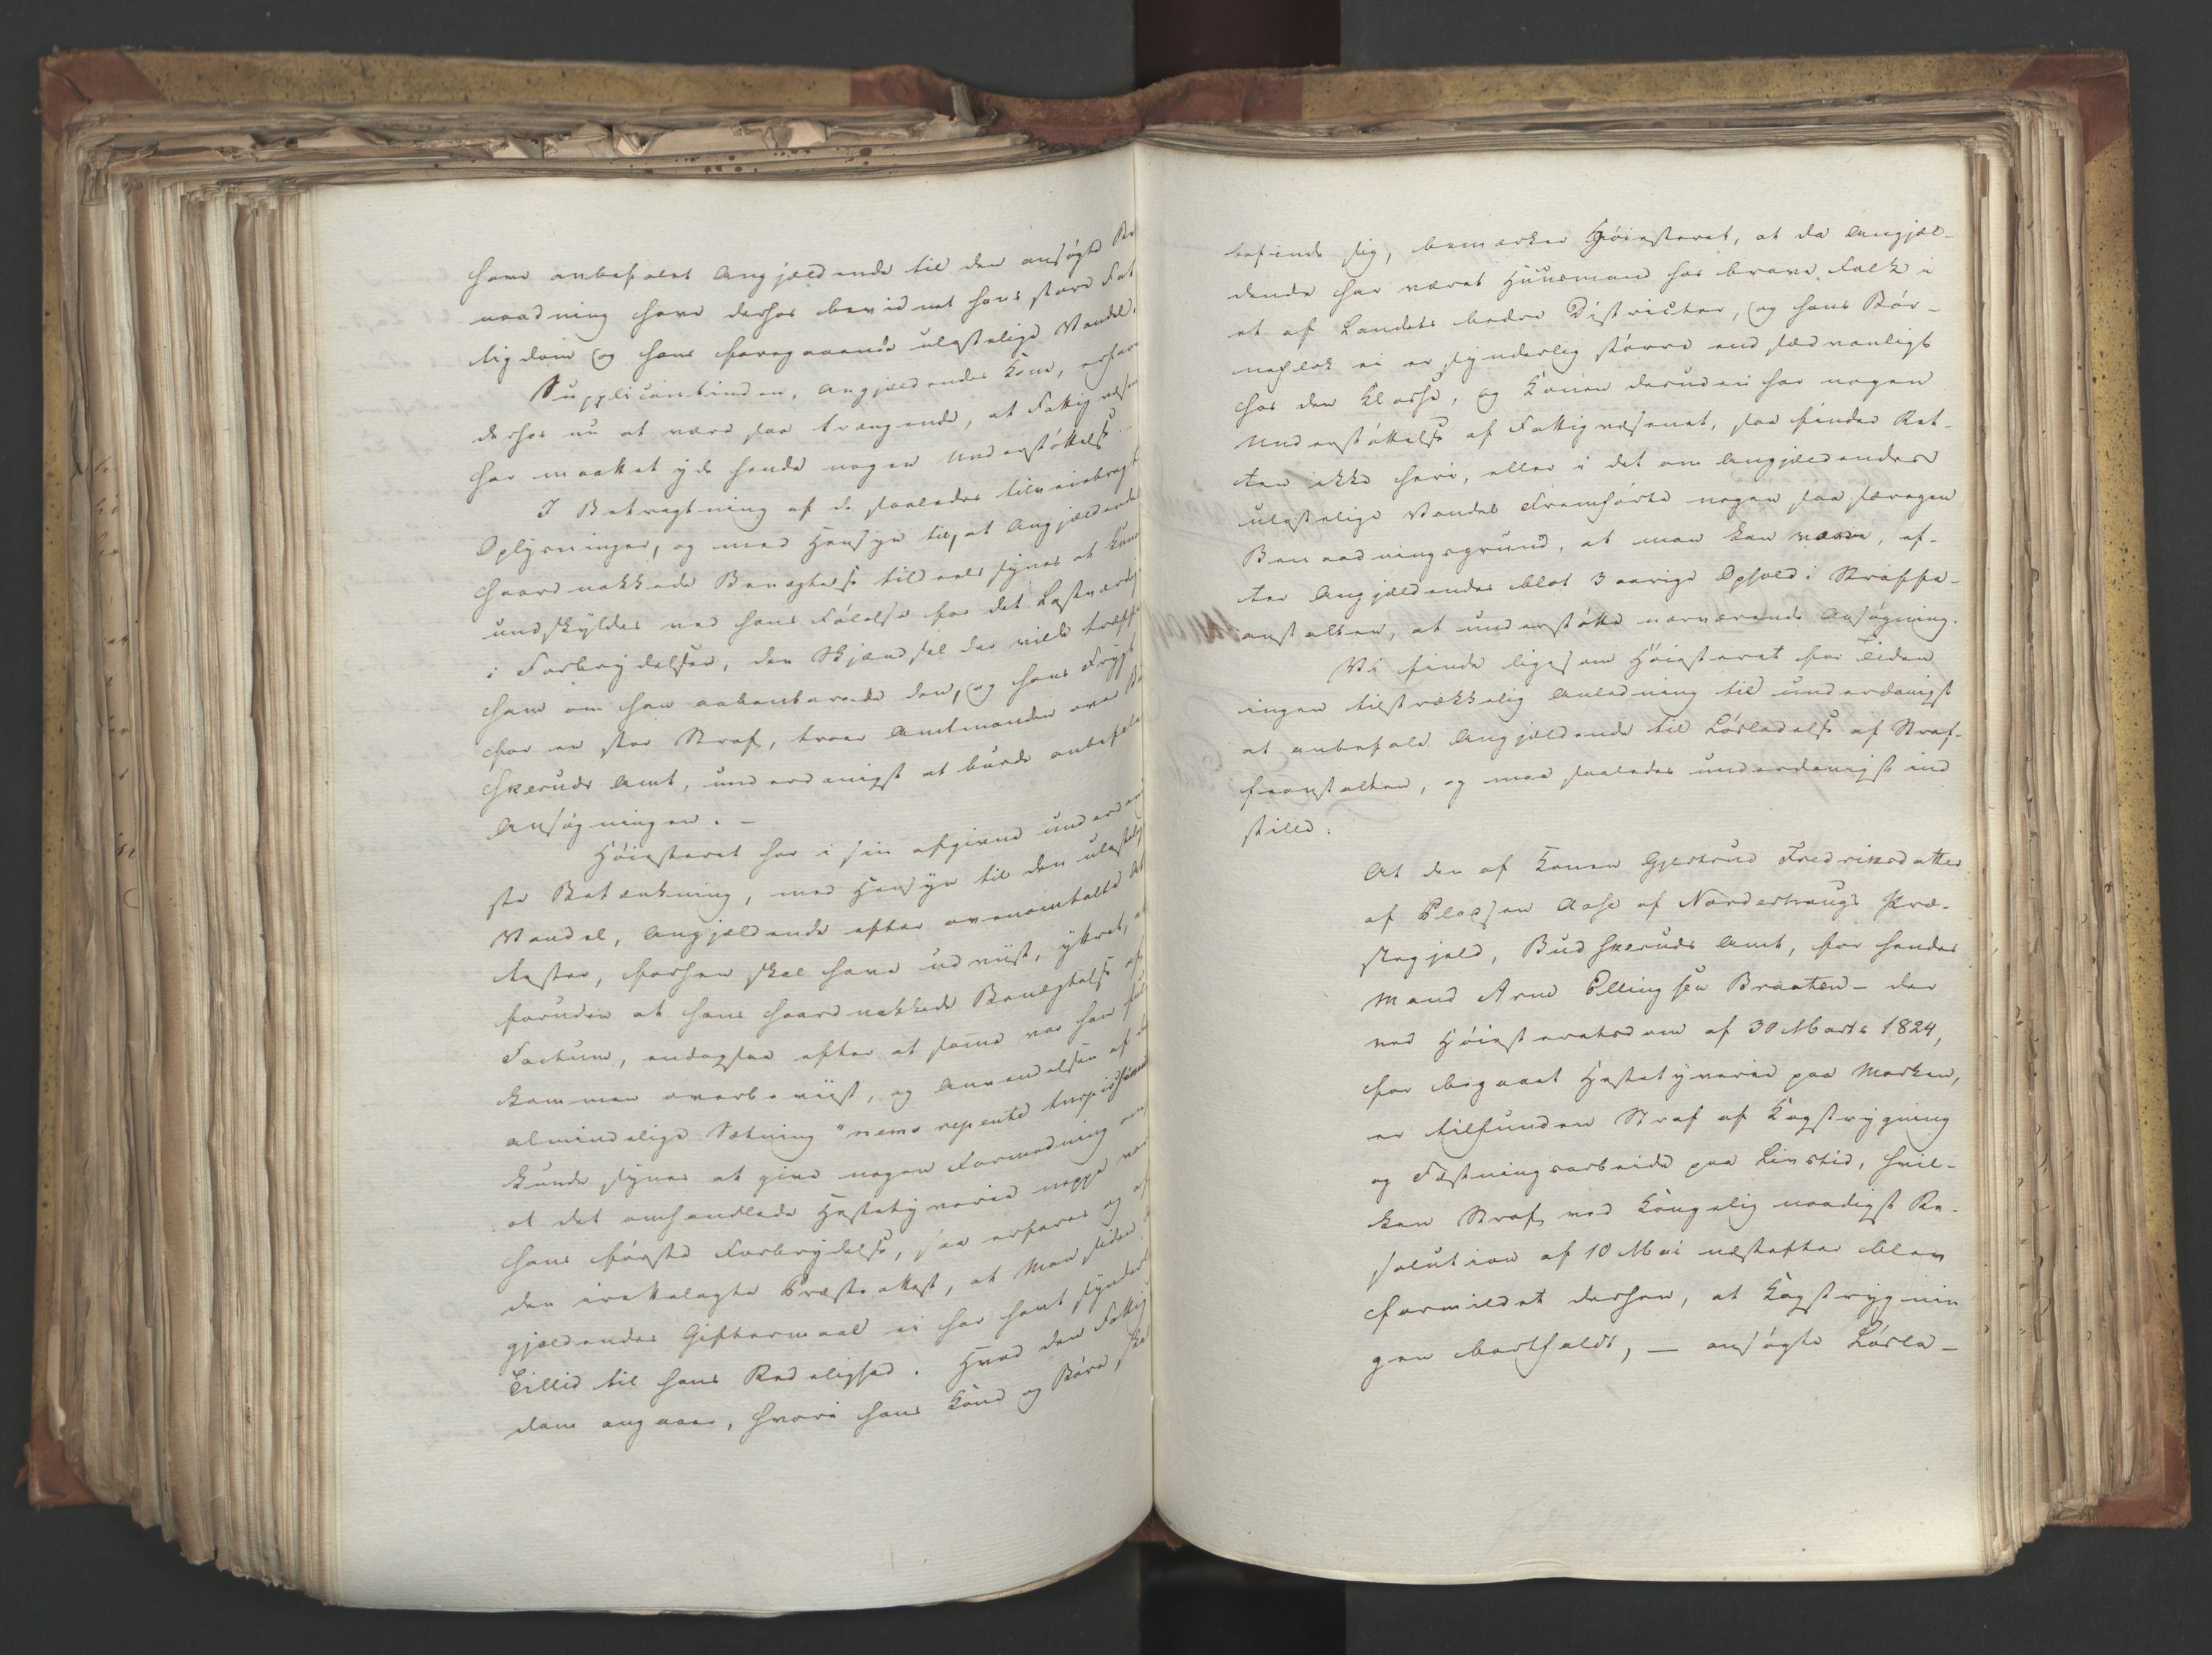 have anbefalet Angjældende til den ansøgte Be
naadning have derhos bevidnet hans store Fat
tigdom og hans foregaaende ulastelige Vandel.
Supplicantinden, Angjældendes Kone, erfares
derhos nu at være saa trængende, at Fattigvæsen
har maattet yde hende nogen Understøttelse.
I Betragtning af de saaledes tilveiebragt
Oplysninger, og med Hensyn til, at Angjældendes
haardnakkede Benægtelse tildeels synes at kunne
undskyldes ved hans Følelse for det Lastværdi
i Forbrydelsen, den Skjændsel der vilde træffe
ham om han aabenbarede den, og hans Frygt
for en stor Straf, troer Amtmanden over Bu
skeruds Amt, underdanigst at burde anbefale
Ansøgningen. -
Høiesteret har i sin afgivne underdanig
ste Betænkning, med Hensyn til den ulastelig
Vandel, Angjældende efter ovenomtalte At
tester, forhen skal have udviist, yttret, at
foruden at hans haardnakkede Benægtelse af
Factum, endogsaa efter at samme var ham ful
kommen overbeviist, og Anvendelsen af den
almindelige Sætning "nemo repente turpissimus"
kunde synes at give nogen Formodning om
at det omhandlede Hestetyverie neppe var
hans første Forbrydelse, saa erfares og af
den irettelagte Præsteattest, at Man siden An
gjældendes Giftermaal ei har havt synderlig
Tillid til hans Redelighed. Hvad den Fattig
dom angaaer, hvori hans Kone og Børn skal
befinde sig, bemærker Høiesteret, at da Angjæl-
dende har været Huusmand hos brave Folk i
et af Landets bedre Districter, og hans Bør-
neflok ei er synderlig større end sædvanligt
hos den Klasse, og Konen desuden har nogen
Understøttelse af Fattigvæsenet, saa finder Ret-
ten ikke heri, eller i det om Angjældendes
ulastelige Vandel Fremførte nogen saa særegen
Benaadningsgrund, at man kan være, ef-
ter Angjældendes blot 3 aarige Ophold i Straffe-
anstalten, at understøtte nærværende Ansøgning.
Vi finde ligesom Høiesteret for Tiden
ingen tilstrækkelig Anledning til underdanigst
at anbefale Angjældende til Løsladelse af Straf-
feanstalten, og maa saaledes underdanigst ind
stille:
At den af Konen Gjertrud Fredriksdatter
af Pladsen Aase af Norderhougs Præ-
stegjeld, Budskeruds Amt, for hendes
Mand Arne Ellingsen Braaten - der
ved Høiesteretsdom af 30 Marts 1824,
for begaaet Hestetyverie paa Marken,
er tilfunden Straf af Kagstrygning
og Fæstningsarbeide paa Livstid, hvil-
ken Straf ved Kongelig naadigst Re-
solution af 10 Mai næstefter blev
formildet derhen, at Kagstrygnin
gen bortfaldt, - ansøgte Løsla-